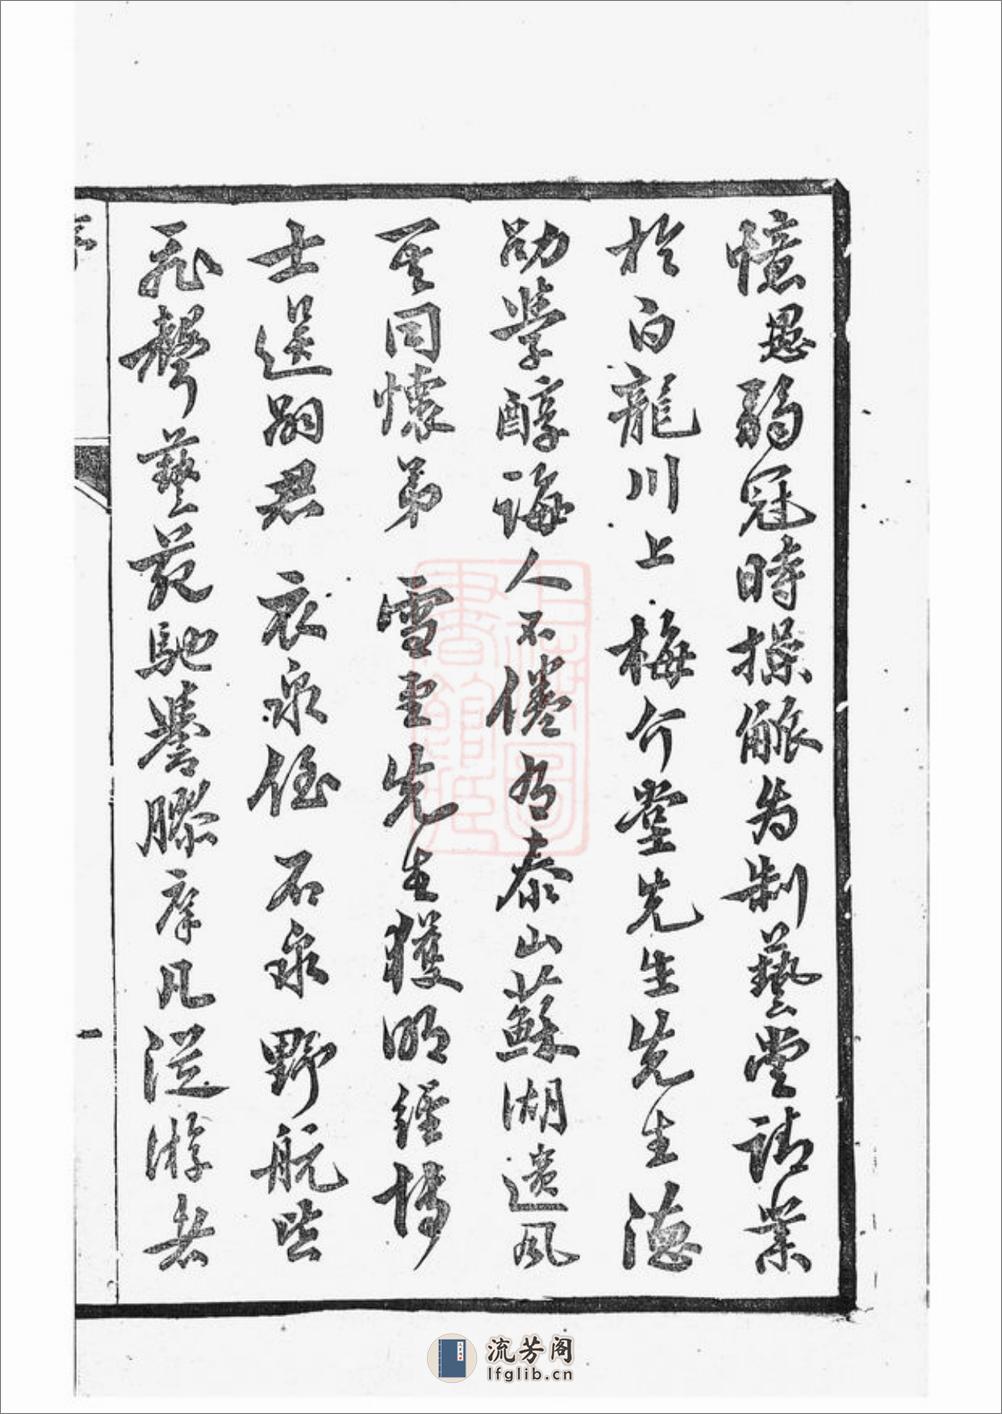 憶愚弱冠時操觚為制藝嘗請業
於白龍川上梅介堂先生先生德
劭學醇誨人不倦有泰山蘇湖遺風
其同懷弟 雪里先生獲明經博
士選嗣君 衣泉侄 石泉 野航皆
飛聲藝苑馳譽膠庠凡從游者
序
一
流芳阁
lfglib.cn